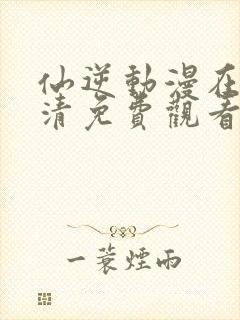 仙逆動漫在
清免費觀看
一蓑煙雨